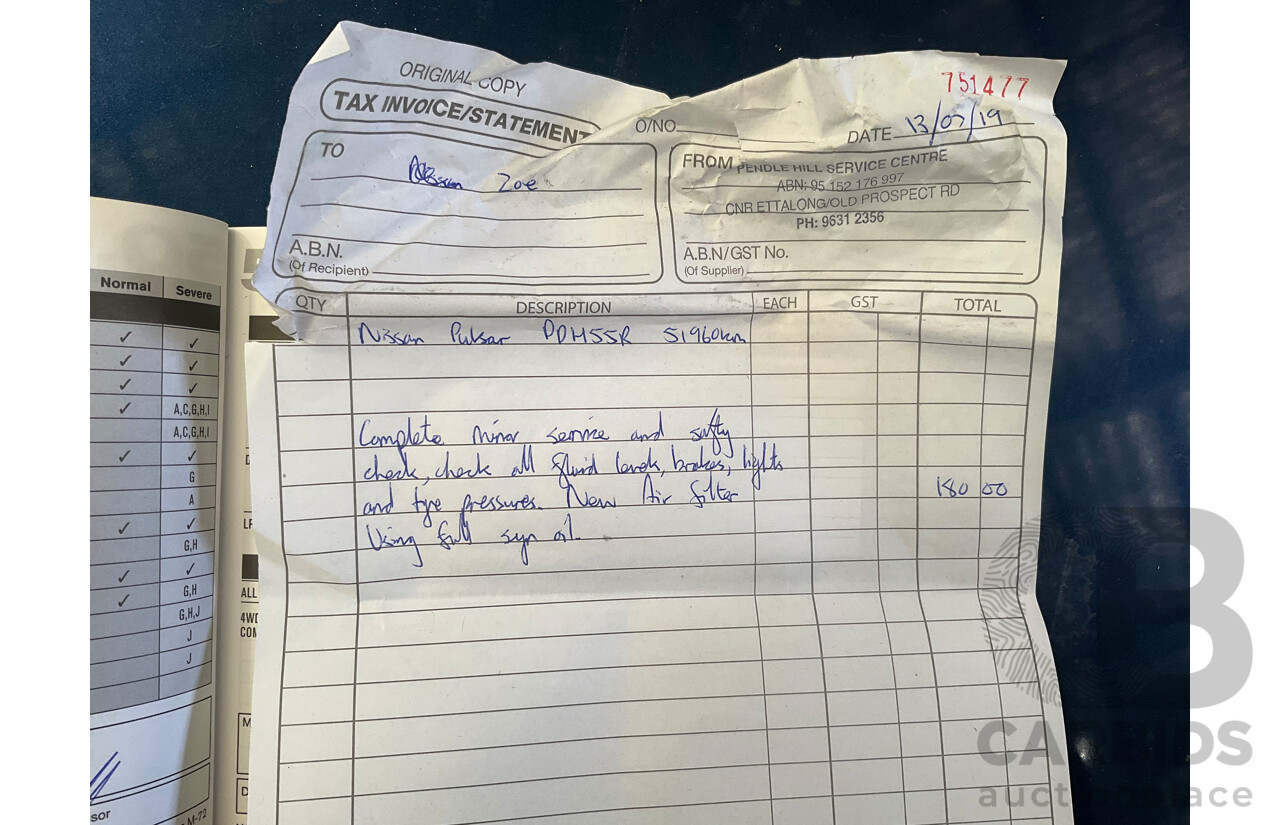 ORIGINAL COPY
TAX INVOICE/STATEMENT
751477
O/NO.
DATE 13/07/19
TO
Zoe
A.B.N.
(Of Recipient)
FROM PENDLE HILL SERVICE CENTRE
ABN: 95 152 176 997
CNR ETTALONG/OLD PROSPECT RD
PH: 9631 2356
A.B.N/GST No.
(Of Supplier)
QTY DESCRIPTION EACH GST TOTAL
Nissan Pulsar DDH55R 51960km
Complete minor service and safty
check, check all fluid levels, brakes, lights
and tyre pressures. New Air filter 180 00
Using full syn oil.
Normal Severe
✓ ✓
✓ ✓
✓ ✓
✓ A,C,G,H,I
A,C,G,H,I
✓ ✓
G
A
✓ ✓
G,H
✓ ✓
✓ G,H
G,H,J
J
J
sor
M-72
ALL
4WD
COM
CARBIDS
auctionplace